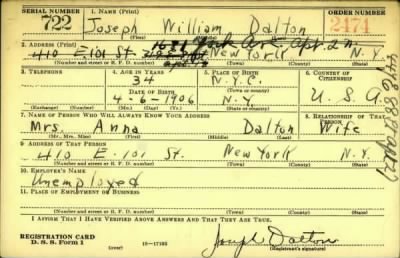 SERIAL NUMBER 1. NAME (Print) ORDER NUMBER
722 Joseph William Dalton 2474
(First) (Middle) (Last)
2. ADDRESS (Print) 1681 York Av Apt. 2N
410 E 101 St. New York N.Y.
(Number and street or R. F. D. number) (Town) (County) (State)
3. TELEPHONE 4. AGE IN YEARS 5. PLACE OF BIRTH 6. COUNTRY OF CITIZENSHIP
34 N.Y.C.
DATE OF BIRTH (Town or county)
4-6-1906 N.Y. U.S.A.
(Exchange) (Number) (Mo.) (Day) (Yr.) (State or country)
7. NAME OF PERSON WHO WILL ALWAYS KNOW YOUR ADDRESS 8. RELATIONSHIP OF THAT PERSON
Mrs. Anna Dalton Wife
(Mr., Mrs., Miss) (First) (Middle) (Last)
9. ADDRESS OF THAT PERSON
410 E. 101 St. New York N.Y.
(Number and street or R. F. D. number) (Town) (County) (State)
10. EMPLOYER'S NAME
Unemployed
11. PLACE OF EMPLOYMENT OR BUSINESS
(Number and street or R. F. D. number) (Town) (County) (State)
I AFFIRM THAT I HAVE VERIFIED ABOVE ANSWERS AND THAT THEY ARE TRUE.
REGISTRATION CARD
D. S. S. Form 1 (over) 16—17105 Joseph Dalton
(Registrant's signature)